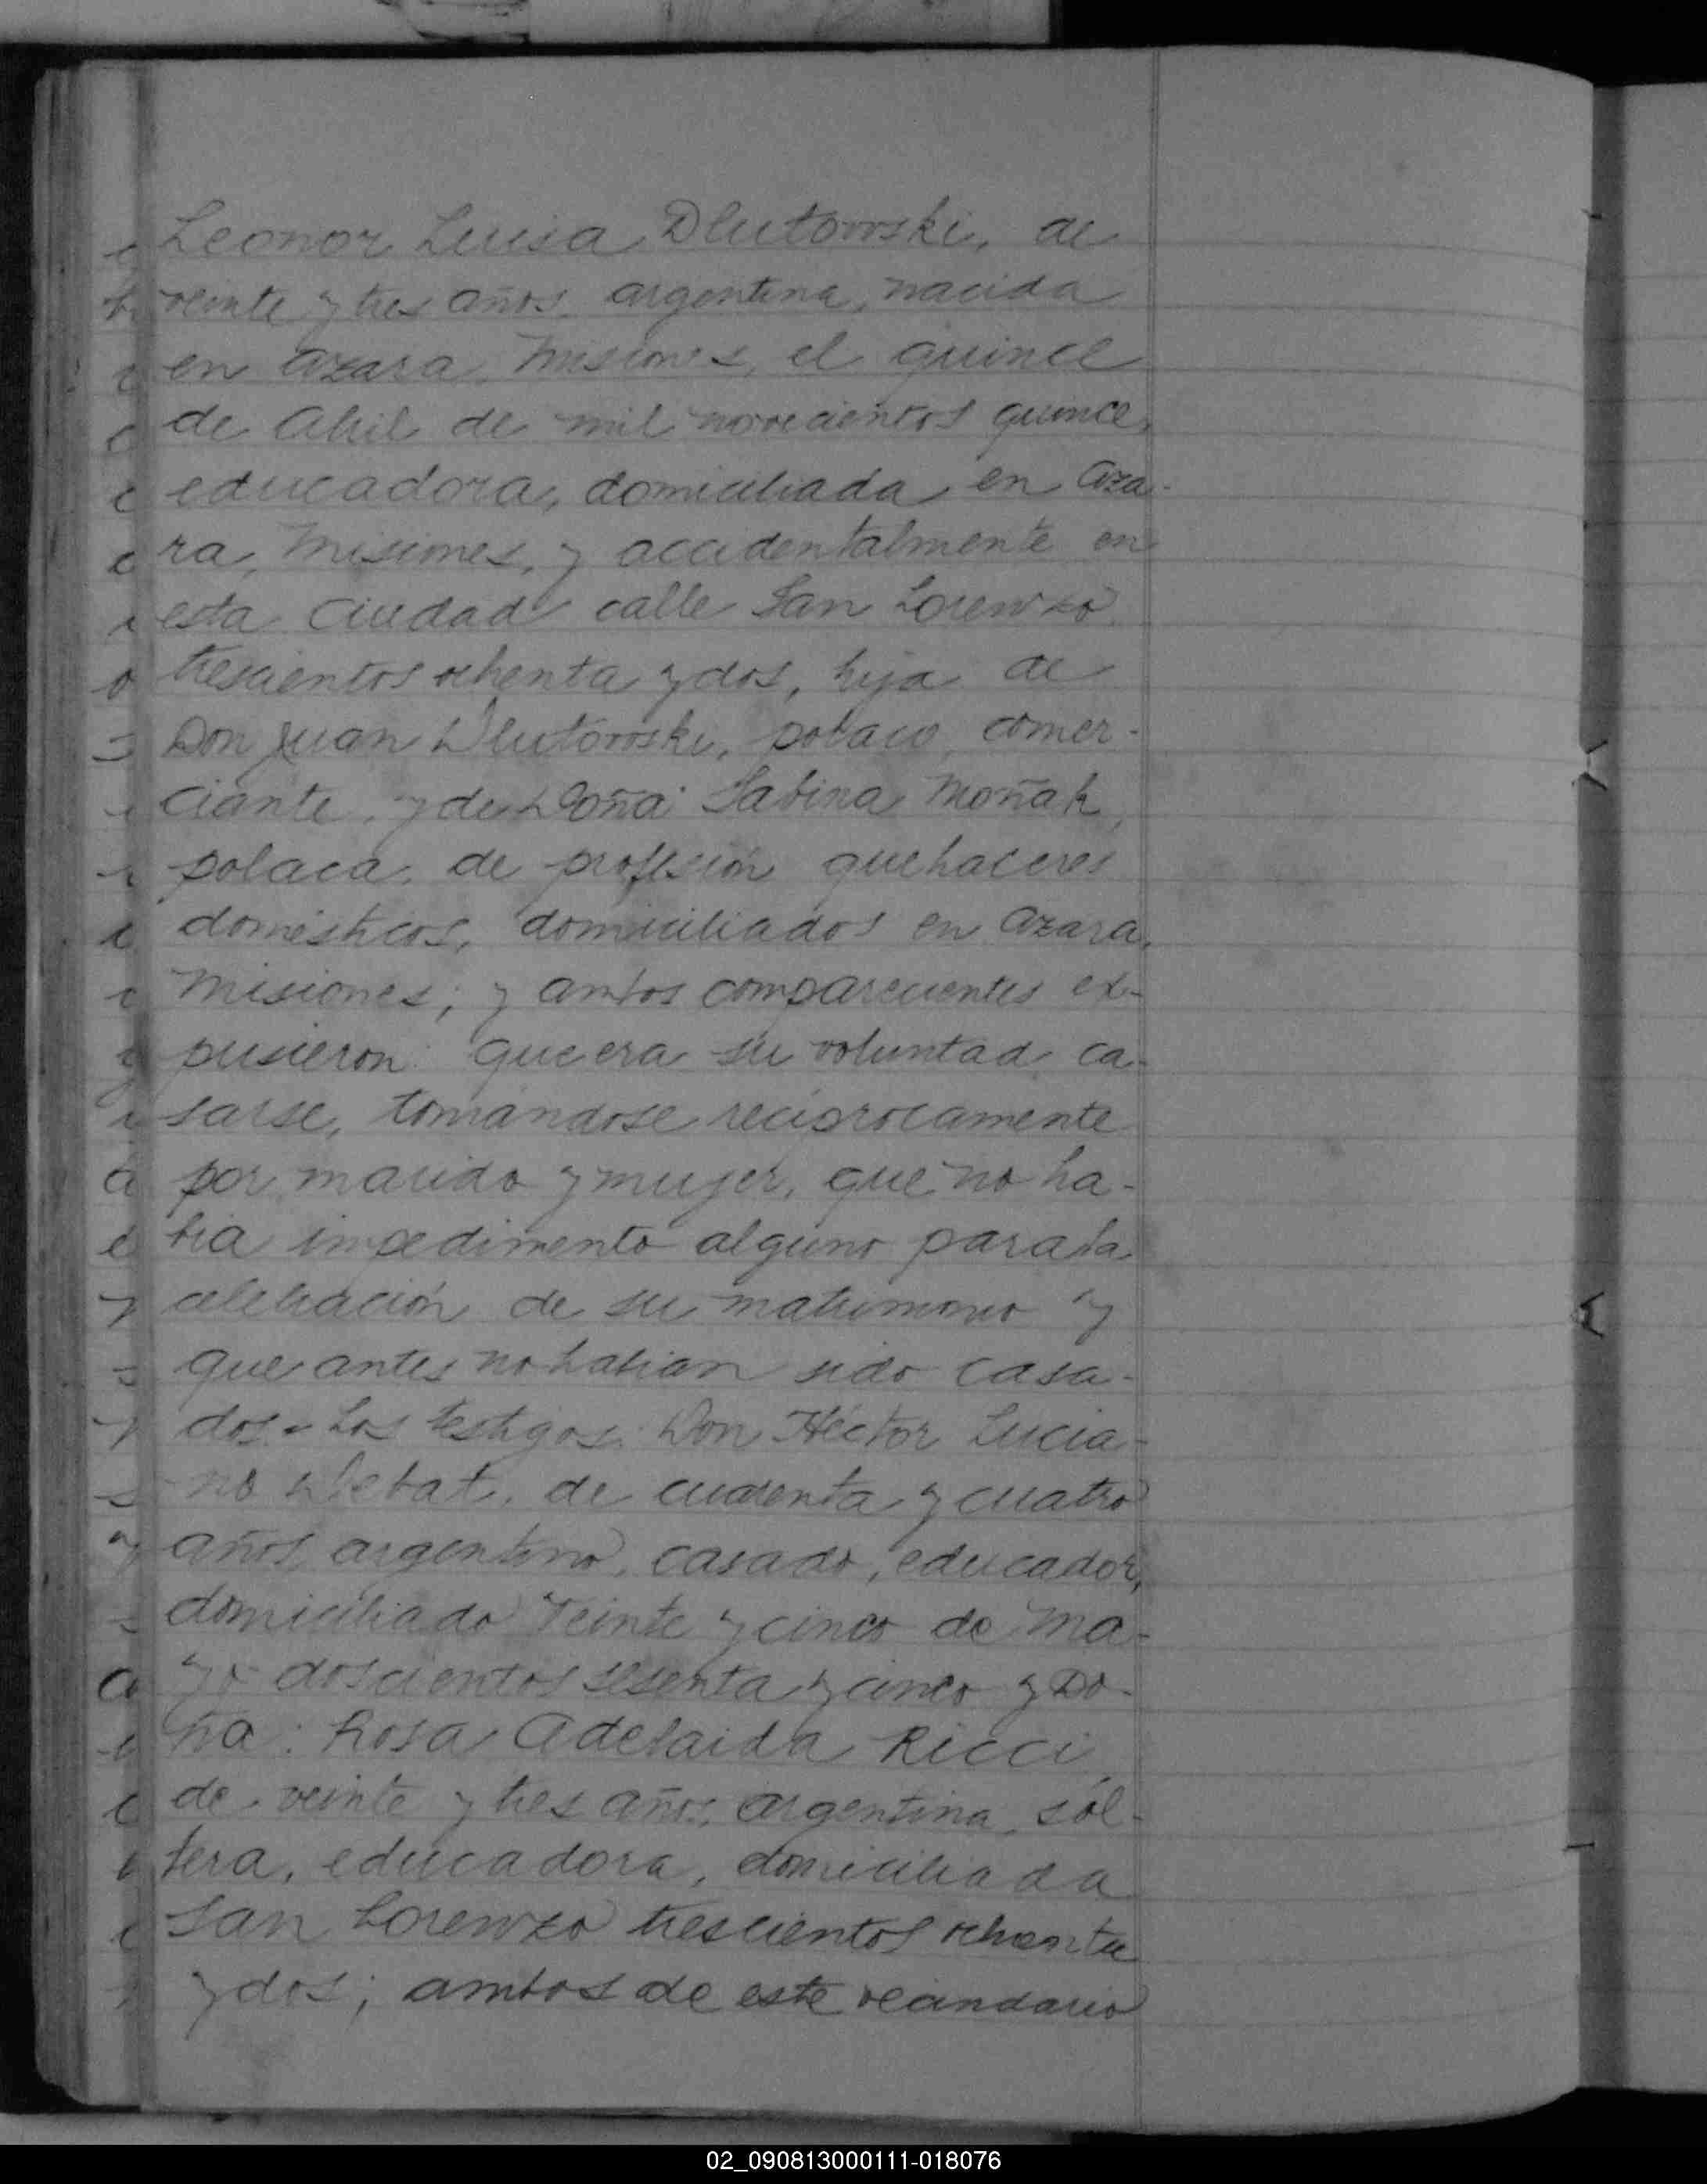 Leonor Luisa Dlutowski, de
veinte y tres años, argentina, nacida
en Azara, Misiones, el quince
de Abril de mil novecientos quince,
educadora, domiciliada en Aza-
ra, Misiones, y accidentalmente en
esta Ciudad calle San Lorenzo
trescientos ochenta y dos, hija de
Don Juan Dlutowski, polaco, comer-
ciante, y de Doña Sabina Moñak,
polaca, de profesión quehaceres
domésticos, domiciliados en Azara,
Misiones; y ambos comparecientes ex-
pusieron: que era su voluntad ca-
sarse, tomándose recíprocamente
por marido y mujer, que no ha-
bia impedimento alguno para la
celebración de su matrimonio y
que antes no habian sido casa-
dos.- Los testigos: Don Héctor Lucia-
no Debat, de cuarenta y cuatro
años, argentino, casado, educador,
domiciliado Veinte y cinco de Ma-
yo doscientos sesenta y cinco y Do-
ña: Rosa Adelaida Ricci,
de veinte y tres años, argentina, sol-
tera, educadora, domiciliada
San Lorenzo trescientos ochenta
y dos; ambos de este vecindario
02_090813000111-018076